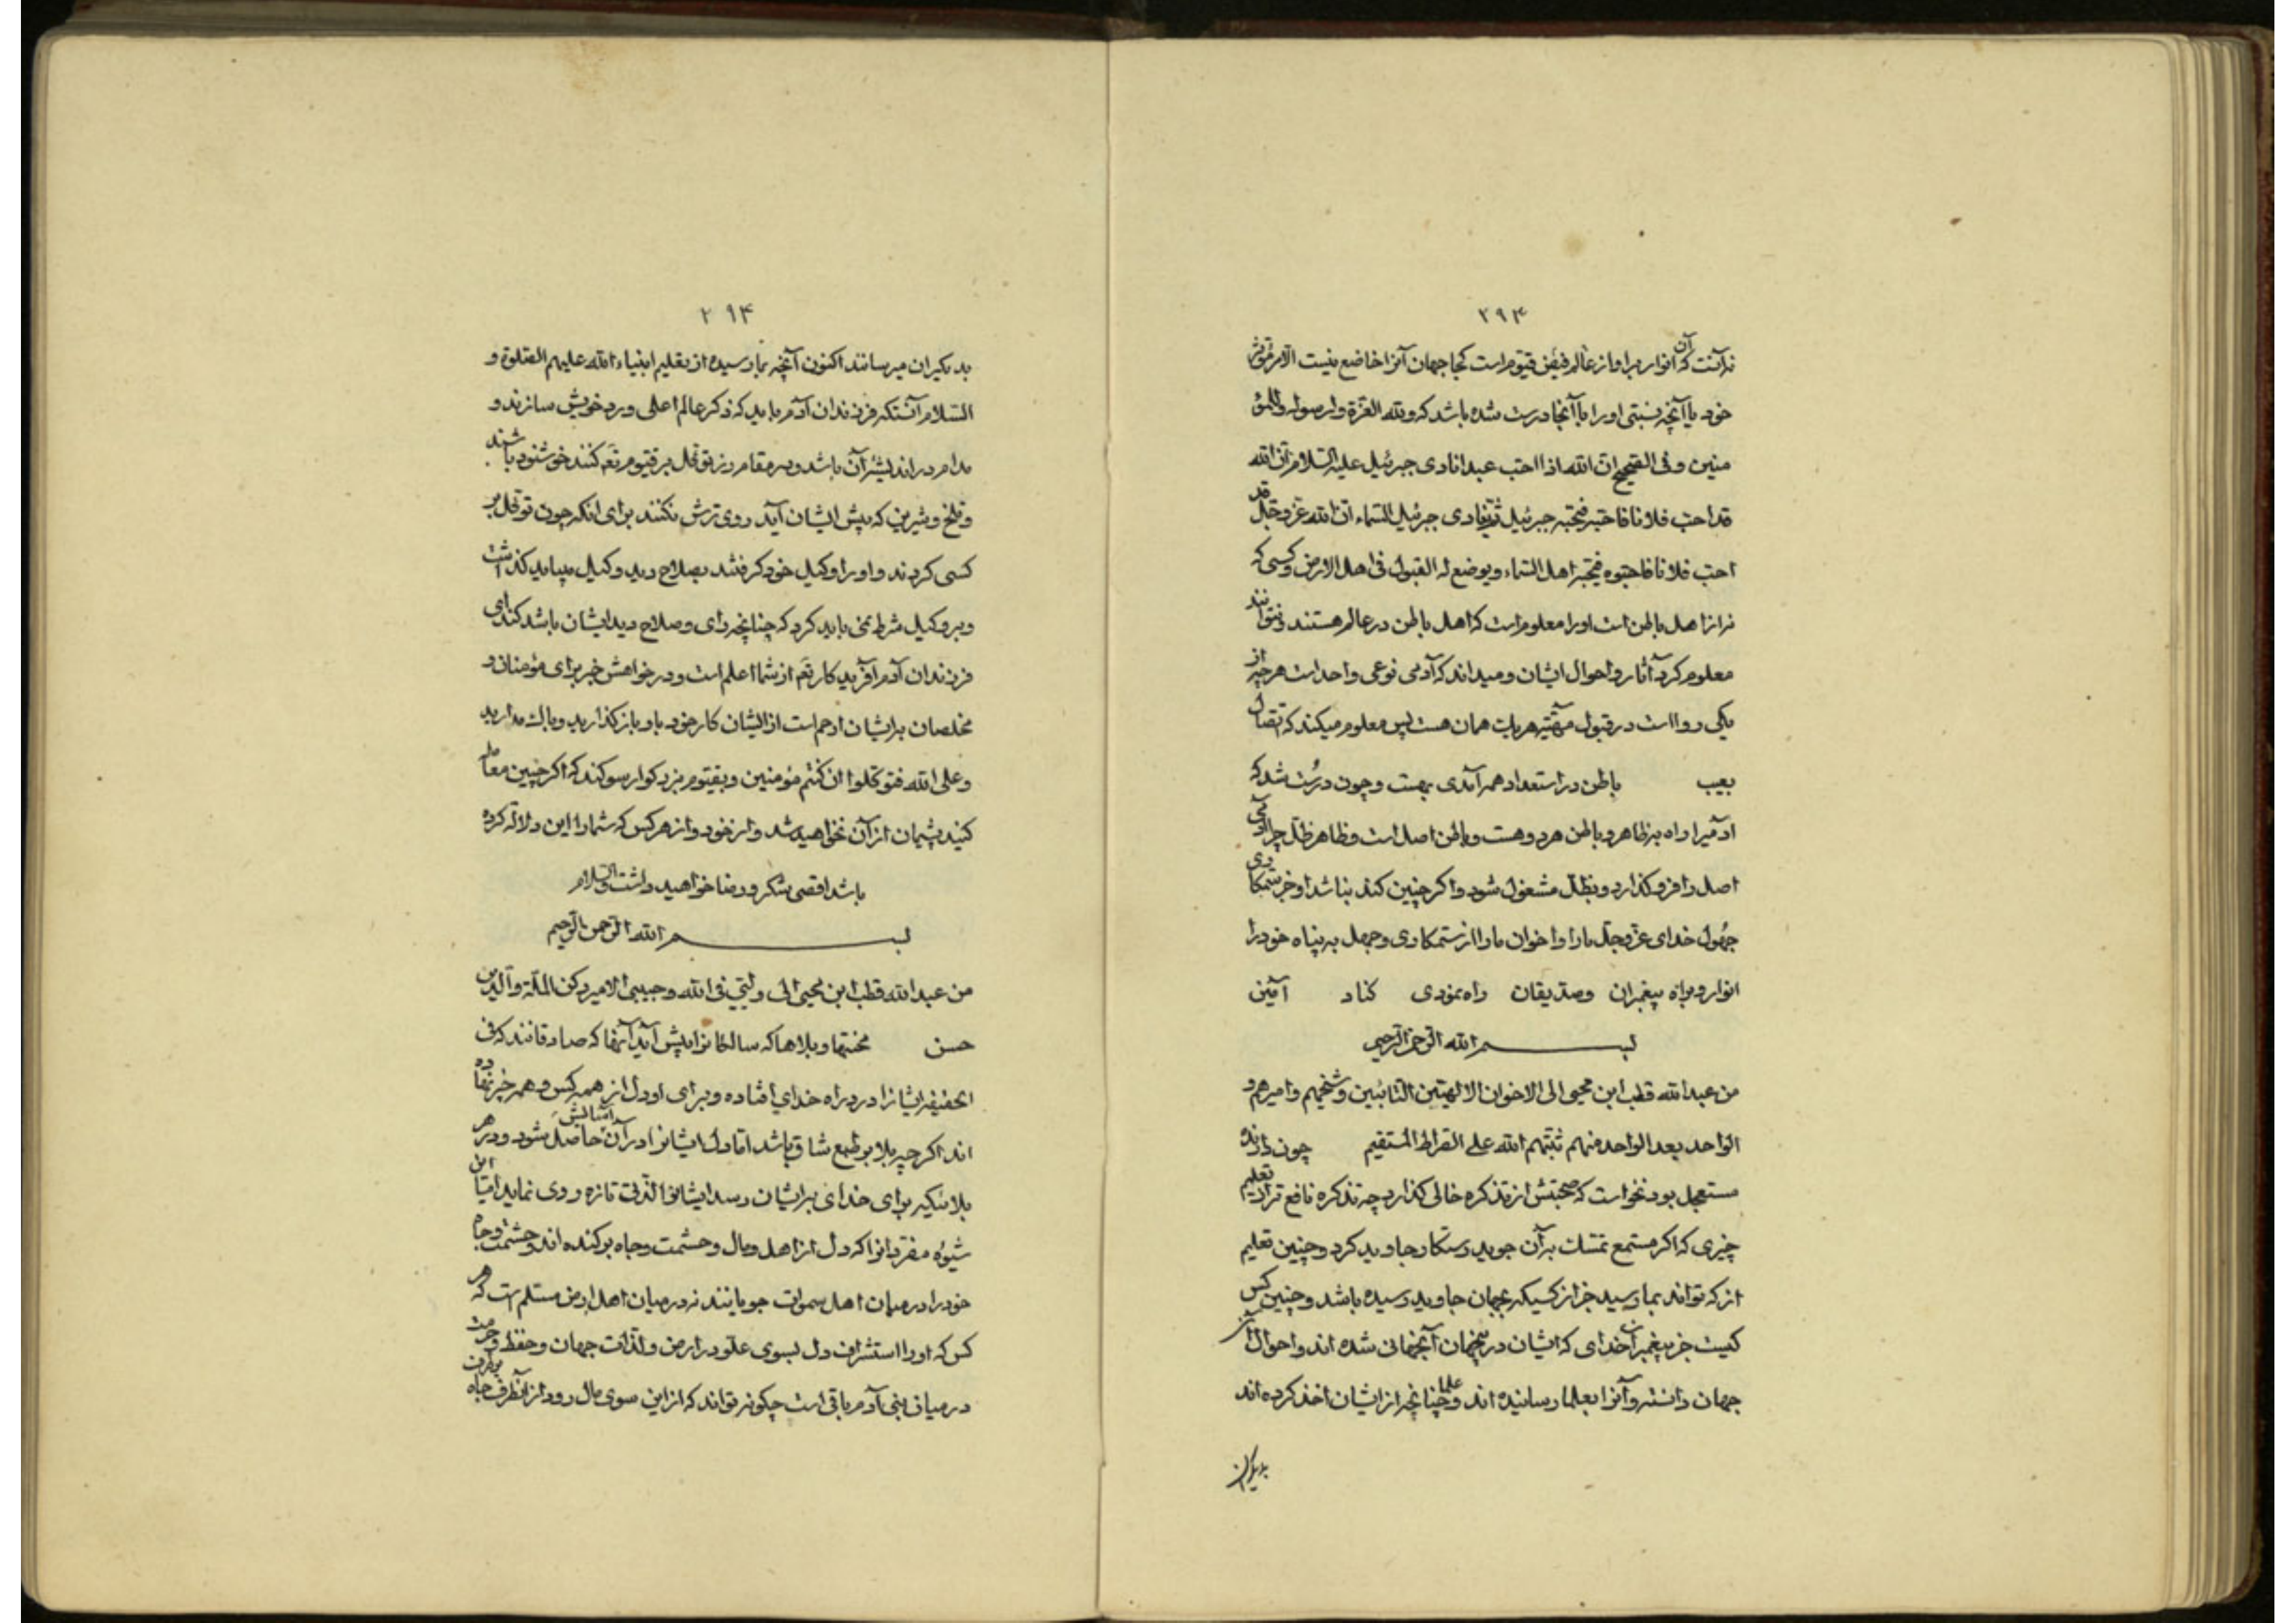 ۲۹۳
نه آنست که آن انوار مر او از عالم فیض قیوم است کجا جهان آنرا خاضع نیست الا مر مؤثر
خود یا آنچه نسبتی او را با آنجا درست شده باشد که ولله العزة ولرسوله وللمؤ
منین وفی الصحیح ان الله اذا احب عبدا نادی جبرئیل علیه السلام ان الله
قد احب فلانا فاحبه فیحبه جبرئیل ثم ینادی جبرئیل السماء ان الله عز وجل قد
احب فلانا فاحبوه فیحبه اهل السماء ویوضع له القبول فی اهل الارض وکسی که
نه از اهل باطن است او را معلوم است که اهل باطن در عالم هستند ونتوانند
معلوم کرد آثار واحوال ایشان ومیداند که آدمی نوعی واحد است هرچه از
یکی روا است در قبول مهیئه هریک همان هست پس معلوم میکند که اتصال
بعیب باطن در استعداد هر آمدی بهست وچون درست شد که
آدمیرا راه به ظاهر وباطن هر دو هست وباطن اصل است وظاهر ظل چرا آدمی
اصل را فرو گذارد وبظل مشغول شود واگر چنین کند بناشد او جز ستمکاری
جهول خدای عز وجل ما را واخوان ما را از ستمکاری وجهل به پناه خود را
انوار وبراه پیغمبران وصدیقان راه نمودی کناد آمین
بسم الله الرحمن الرحیم
من عبد الله قطب ابن محیی الی الاخوان الالهیین التائبین وشیخهم وامیرهم و
الواحد بعد الواحد منهم ثبتهم الله علی الصراط المستقیم چون دارنده
مستعجل بود نخواست که صحبتش از تذکره خالی گذارد چه تذکره نافع تر از تعلیم
چیزی که اگر مستمع تمسک به آن جوید رستگار جاوید گردد وچنین تعلیم
از که تواند بما رسید جز از کسیکه بجهان جاوید رسیده باشد وچنین کس
کیست جز پیغمبران خدای که ایشان در اینجهان آنجهانی شده اند واحوال آن
جهان دانسته وآنرا بعلما رسانیده اند وعلما چنانچه از ایشان اخذ کرده اند
بدیگران
۲۹۴
بدیگران میرسانند اکنون آنچه بما رسیده از تعلیم انبیاء الله علیهم الصلوة و
السلام آنستکه فرزندان آدم باید که ذکر عالم اعلی ورد خویش سازند و
مدام در اندیشه آن باشد ودر مقام رزق توکل بر قیوم تعم کنند خوشنود باشند
وتلخ وشیرین که پیش ایشان آید روی ترش نکنند برای انکه چون توکل بر
کسی کردند واو را وکیل خود کرفتند بصلاح دید وکیل میباید گذاشت
وبر وکیل شرط نمی باید کرد که چنانچه رای وصلاح دید ایشان باشد کند ای
فرزندان آدم آفریدکار تعم از شما اعلم است ودر خواهش خیر برای مؤمنان و
مخلصان بر ایشان ارحم است از ایشان کار خود باو باز گذارید وباک مدارید
وعلی الله فتوکلوا ان کنتم مؤمنین وبقیوم بزرکوار سوکند که اگر چنین معامله
کنید پشیمان از آن نخواهید شد واز خود واز هر کس که شما را این دلاله کرده
باشد اقصی شکر ورضا خواهید داشت والسلام
بسم الله الرحمن الرحیم
من عبد الله قطب ابن محیی الی ولیی فی الله وحبیبی الامیر رکن الملة والدین
حسن محنتها وبلاها که سالکانرا پیش آید آنها که صادقانند که فی
الحقیقه ایشانرا درد راه خدای افتاده وبرای او دل از همه کس وهمه چیز نهاده
اند اگرچه بلا بر طبع شاق باشد اما دل ایشانرا در آن آسایش حاصل شود ودر هر
بلائیکه برای خدای بر ایشان رسد ایشانرا لذتی تازه روی نماید اما این
شیوه مفردانرا که دل از اهل ومال وحشمت وجاه بر کنده اند وحشمت وجاه
خود را در میان اهل سموات جویانند نه در میان اهل ارض مسلم است که هر
کس که او را استشراف دل بسوی علو در ارض ولذات جهان وحفظ وحرمت
در میان بنی آدم باقی است چگونه تواند که از این سوی مال رود از آنطرف جاه برطرف